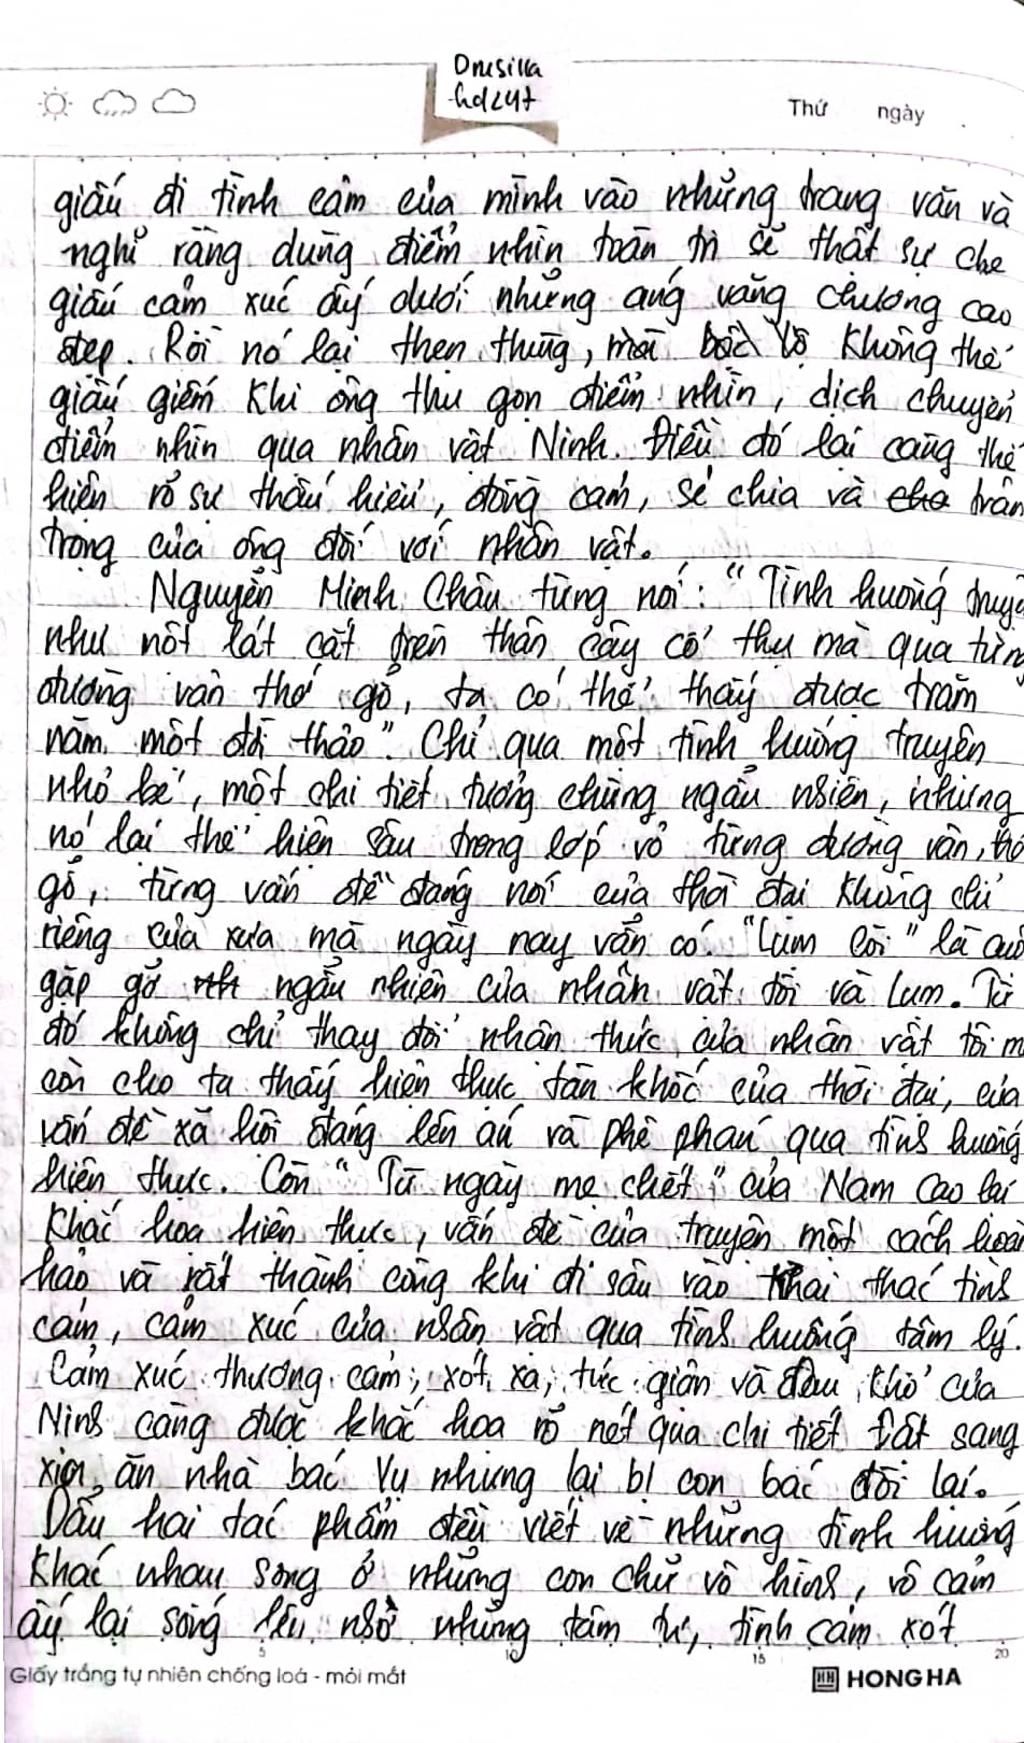 Drusilla
-hdzy7
Thứ ngày
giấu đi tình cảm của mình vào những trang văn và
nghĩ rằng dùng điểm nhìn toàn tri sẽ thật sự che
giấu cảm xúc ấy dưới những áng văng chương cao
đẹp. Rồi nó lại thẹn thùng, mà bộc lộ không thể
giấu giếm khi ông thu gọn điểm nhìn, dịch chuyển
điểm nhìn qua nhân vật Ninh. Điều đó lại càng thể
hiện rõ sự thấu hiểu, đồng cảm, sẻ chia và cho trân
trọng của ông đối với nhân vật.
Nguyễn Minh Châu từng nói: "Tình huống truyệ
như một lát cắt trên thân cây cổ thụ mà qua từng
đường vân thớ gỗ, ta có thể thấy được trăm
năm một đời thảo". Chỉ qua một tình huống truyện
nhỏ bé, một chi tiết tưởng chừng ngẫu nhiên, nhưng
nó lại thể hiện sâu trong lớp vỏ từng đường vân, thớ
gỗ, từng vấn đề đáng nói của thời đại không chỉ
riêng của xưa mà ngày nay vẫn có. "Lụm còi" là cuộ
gặp gỡ ngẫu nhiên của nhân vật tôi và Lụm. Từ
đó không chỉ thay đổi nhận thức của nhân vật tôi m
còn cho ta thấy hiện thực tàn khốc của thời đại, của
vấn đề xã hội đáng lên án và phê phán qua tình huống
hiện thực. Còn "Từ ngày mẹ chết" của Nam Cao lại
khắc họa hiện thực, vấn đề của truyện một cách hoàn
hảo và rất thành công khi đi sâu vào khai thác tình
cảm, cảm xúc của nhân vật qua tình huống tâm lý.
Cảm xúc thương cảm, xót xa, tức giận và đau khổ của
Ninh càng được khắc họa rõ nét qua chi tiết Đật sang
xin ăn nhà bác Vụ nhưng lại bị con bác đòi lại.
Dẫu hai tác phẩm đều viết về những tình huống
khác nhau song ở những con chữ vô hình, vô cảm
ấy lại sống lên nhờ những tâm tư, tình cảm xót
5 10 15 20
Giấy trắng tự nhiên chống loá - mỏi mắt
HH HONG HA